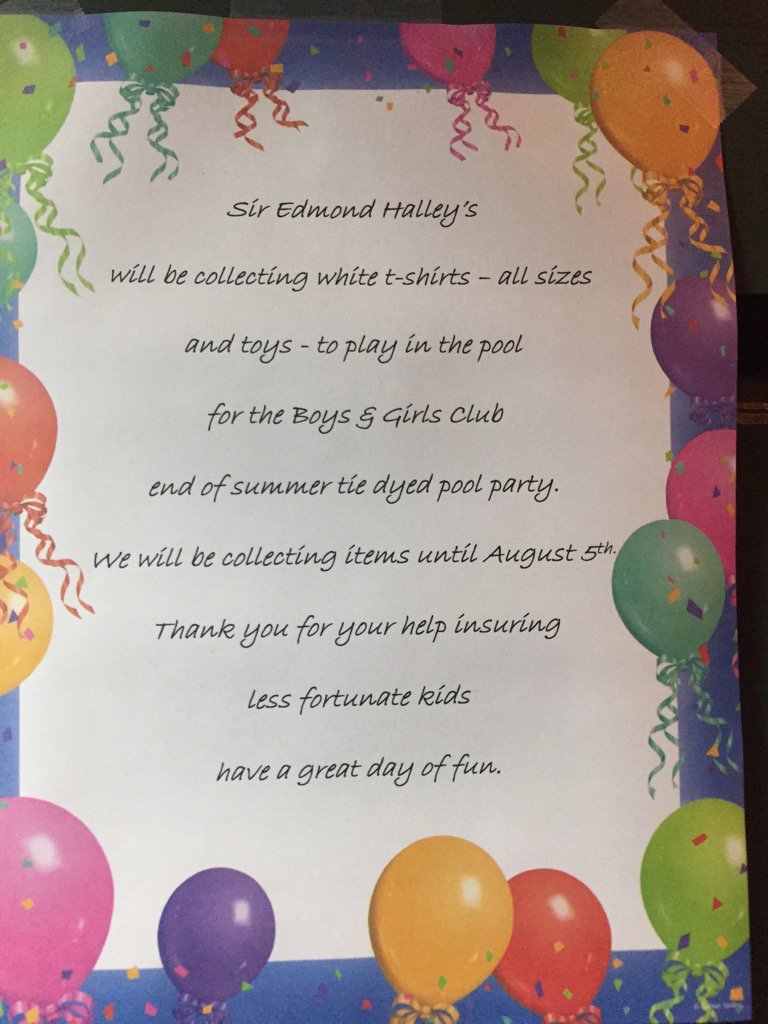 Sir Edmond Halley's
will be collecting white t-shirts – all sizes
and toys - to play in the pool
for the Boys & Girls Club
end of summer tie dyed pool party.
We will be collecting items until August 5th.
Thank you for your help insuring
less fortunate kids
have a great day of fun.